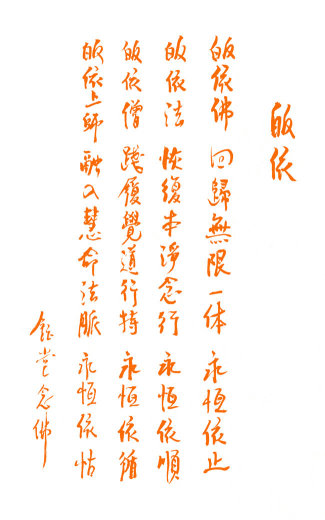 皈依
皈依佛 回歸無限一体 永恆依止
皈依法 恢復本淨念行 永恆依順
皈依僧 踐履覺道行持 永恆依循
皈依上師 融入慧命法脈 永恆依怙
念佛